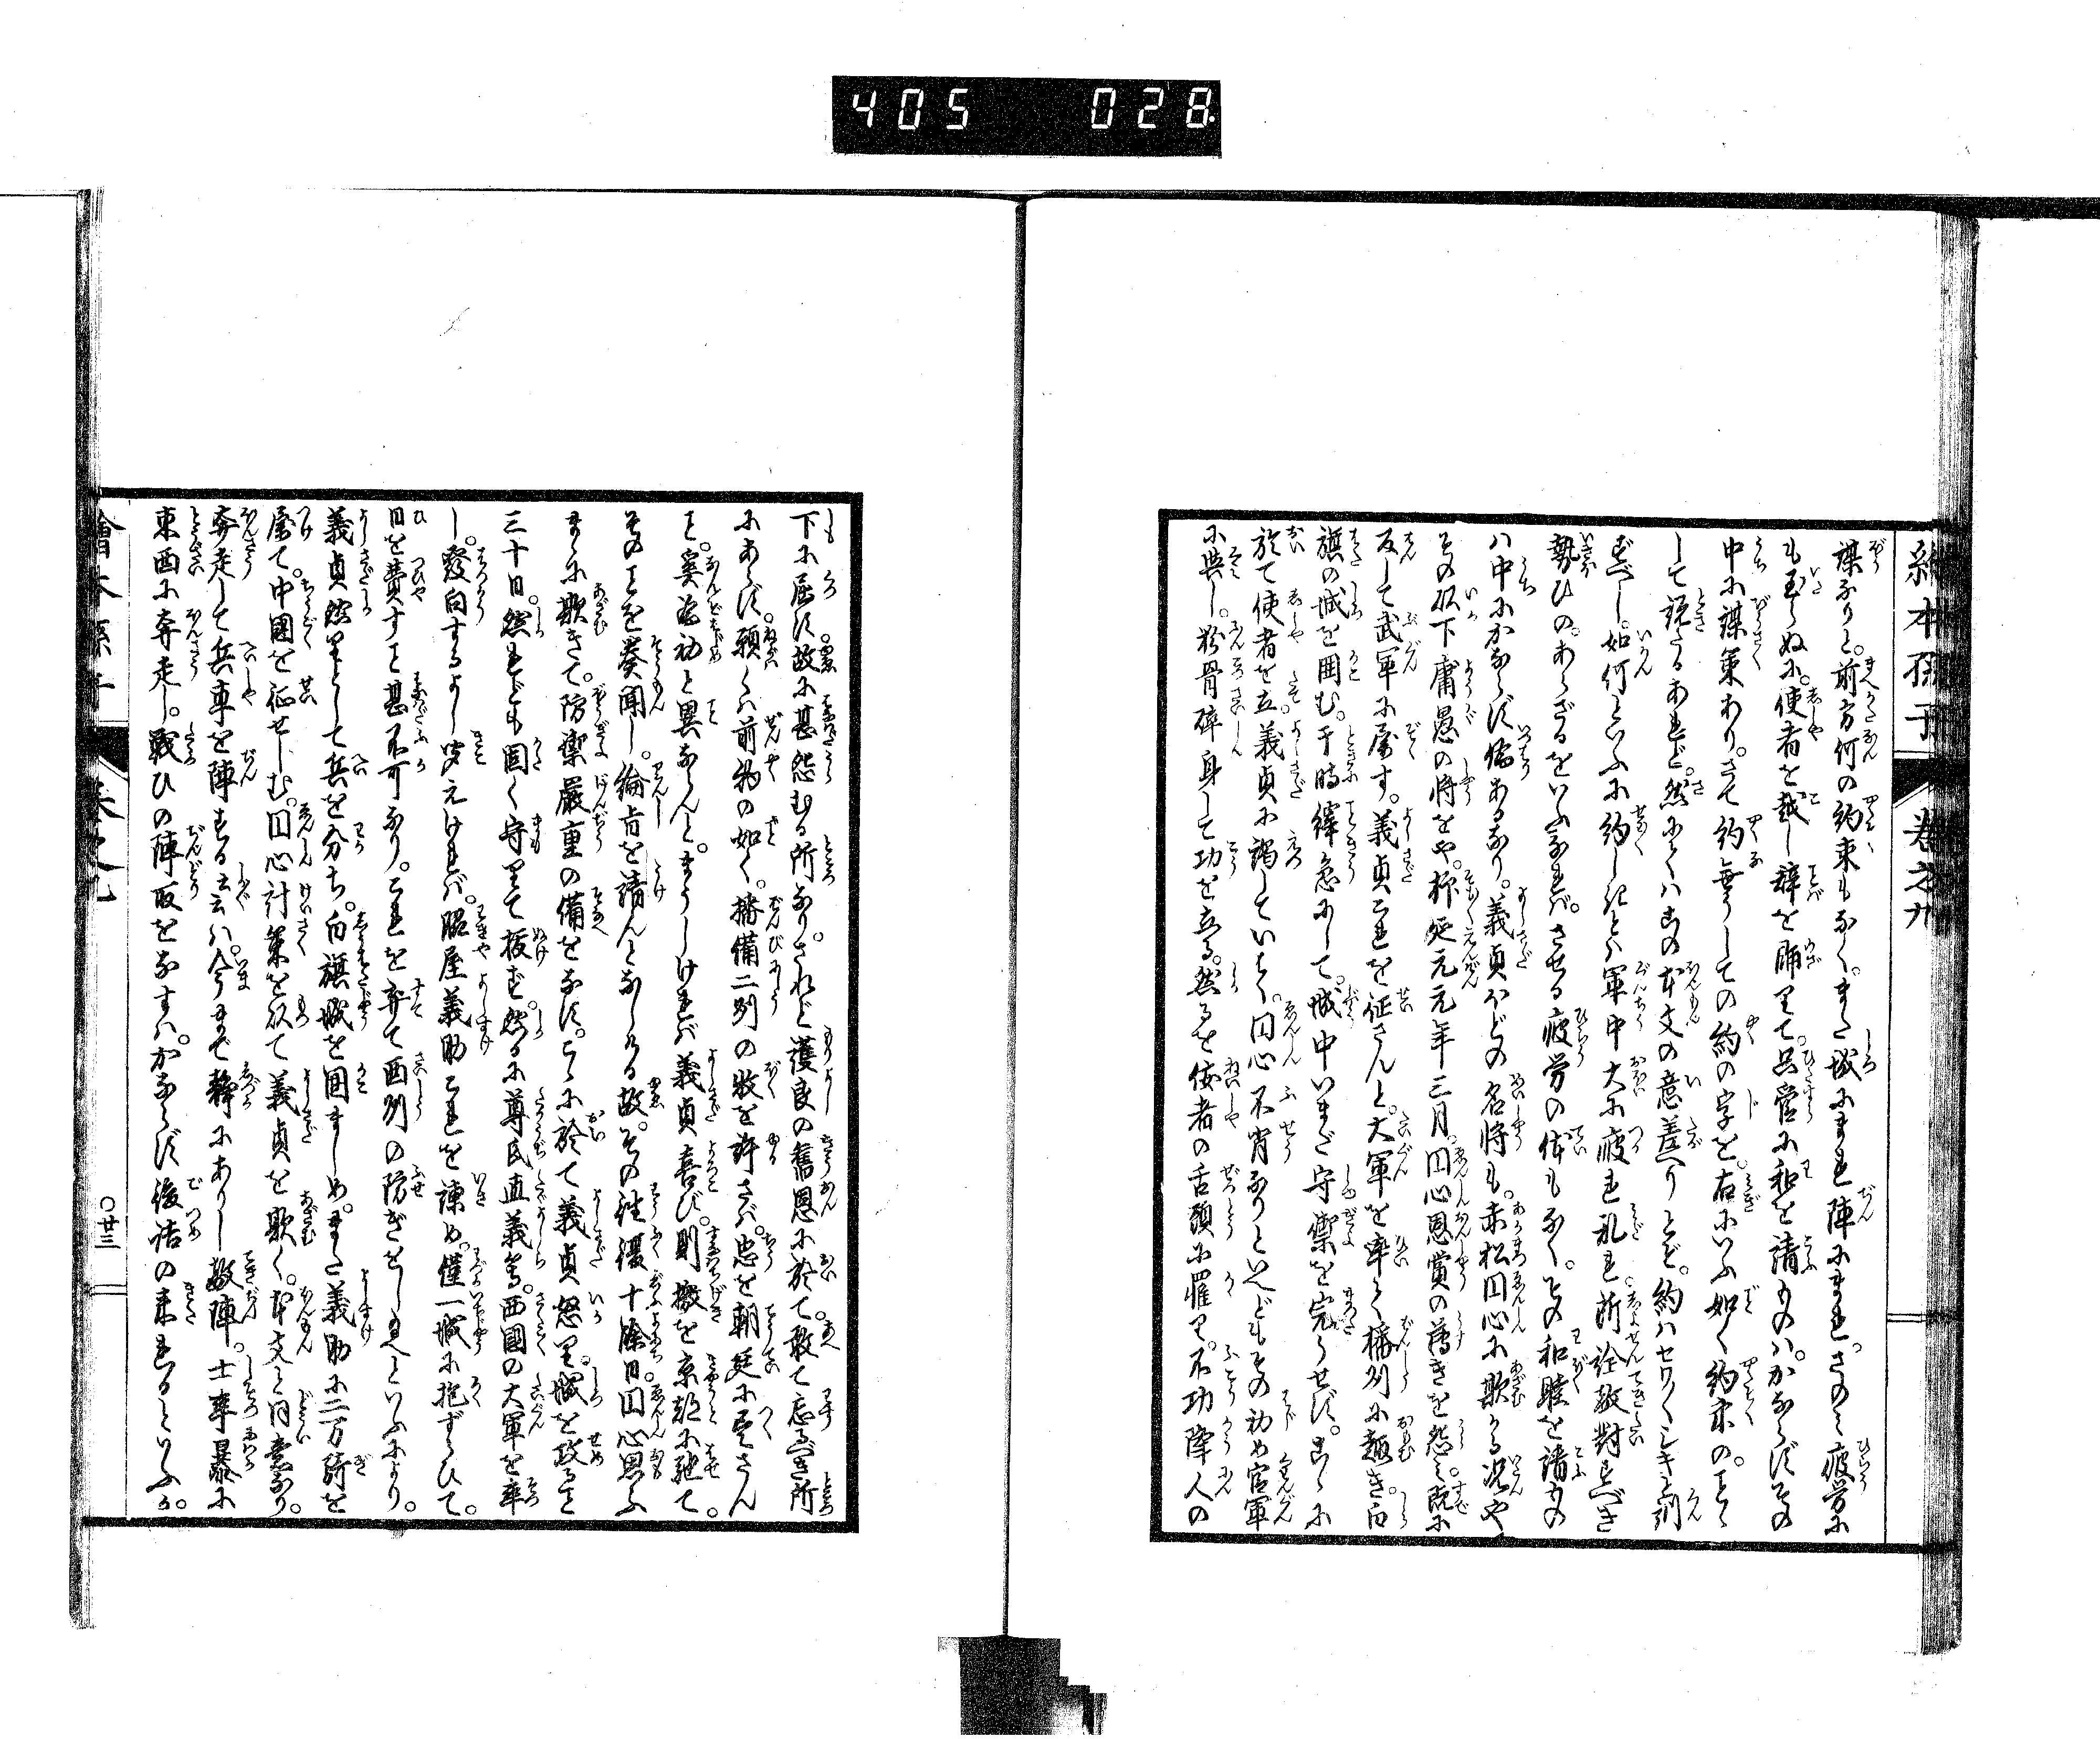 405 028
絵本孫子 巻之九
謀なりと。前方何の約束もなく。また城にまれ陣にまれ。さのミ疲労に
も至らぬに。使者を越し辞を卑りて。只管に和を請ものハ。かならずその
中に謀策あり。さて約無うしての約の字を。右にいふ如く約束の。こと
して説たるあれど。然にてハ此の本文の意差へりとぞ。約ハセワ〳〵シキと訓
ずべし。如何といふに約しきとハ軍中大に疲れ乱れ。所詮敵対すべき
勢ひの。あらざるをいふなれバ。させる疲労の体もなく。その和睦を請もの
ハ中にかならず偽あるなり。義貞ほどの名将も。赤松円心に欺かる況や
その以下庸愚の将をや。抑延元元年三月。円心恩賞の薄きを怨ミ既に
反して武軍に属す。義貞これを征さんと。大軍を率て播州に趣き。白
旗の城を囲む。于時緯急にして。城中いまだ守禦を完うせず。こゝに
於て使者を立義貞に謁していはく。円心不肖なりといへどもその初め官軍
に与し。粉骨砕身して功を立る。然るを佞者の舌頭に罹り。不功降人の
下に屈ず故に甚怨むる所なり。されど護良の旧恩に於て。敢て忘るべき所
にあらず。願くハ前約の如く。播備二州の牧を許さバ。忠を朝廷に尽さん
こと。奚ぞ初と異ならんと。まうしけれバ義貞喜び。則檄を京都に馳て。
そのことを奏聞し。綸旨を請んとなしける故。その往復十餘日。円心思ふ
まゝに欺きて。防禦厳重の備をなす。こゝに於て義貞怒り。城を攻ること
三十日。然れども固く守りて抜ず。然るに尊氏直義等。西国の大軍を率
し。発向するよし聞えけれバ。脇屋義助これを諫め。僅一城に抱ずらひて。
日を費すこと甚不可なり。これを棄て西州の防ぎをし玉へといふにより。
義貞然りとして兵を分ち。白旗城を囲ましめ。また義助に二万騎を
属て。中国を征せしむ。円心計策を以て義貞を欺く。本文と同意なり。
奔走して兵車を陣する云云ハ。今まで静にありし敵陣。士卒暴に
東西に奔走し。戦ひの陣取をなすハ。かならず後詰の来れるといふか。
絵本孫子 巻之九 〇廿三